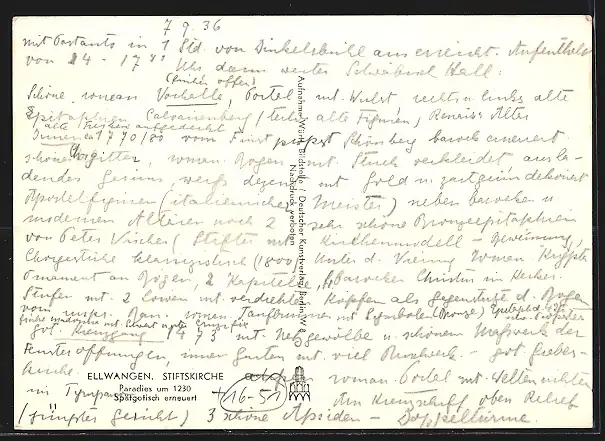 7 9. 36
mit Postauto in 1 Std. von Dinkelsbühl aus erreicht. Aufenthalt
von 14 - 17 Uhr dann weiter Schwäbisch Hall:
(früher offen)
Schöne roman Vorhalle, Portal mit Wulst rechts u links alte
Epitaphien Calvarienberg (teils alte Figuren, Renaiss Alter
alte Fresken aufgedeckt
Inneres 1770/80 vom Fürstpropst Schönberg barock erneuert.
schönes Chorgitter, roman. Bogen mit Stuck verkleidet ausla-
dendes Gesims weiss dezent mit Gold u zartgrün dekoriert
Apostelfiguren (italienischer Meister) neben barocken u
modernen Altären noch 2 sehr schöne Bronzeepitaphien
von Peter Vischer (Stifter mit Kirchenmodell -
Chorgestühl klassizistisch (1800) Unter d. Vierung roman Krypta
Ornament an Bögen, 2 Kapitelle, barocker Christus im Kerker.
Stufen mit 2 Löwen mit verdrehten Köpfen als Gegenstück d. Bogen
roman. Taufbrunnen mit Symbolen (Bronze)
got. Kreuzgang 1473 mit Netzgewölbe u schönem Maßwerk der
Fensteröffnungen, innen Garten mit viel Buschwerk - got Lieber-
kirche. auch roman. Portal mit Weltenrichter
im Tympanon (16-51) Am Kreuzschiff oben Relief
(jüngstes Gericht) 3 schöne Apsiden - Doppeltürme.
ELLWANGEN. STIFTSKIRCHE
Paradies um 1230
Spätgotisch erneuert
Aufnahme Württ. Bildstelle / Deutscher Kunstverlag Berlin W 8
Nachdruck verboten